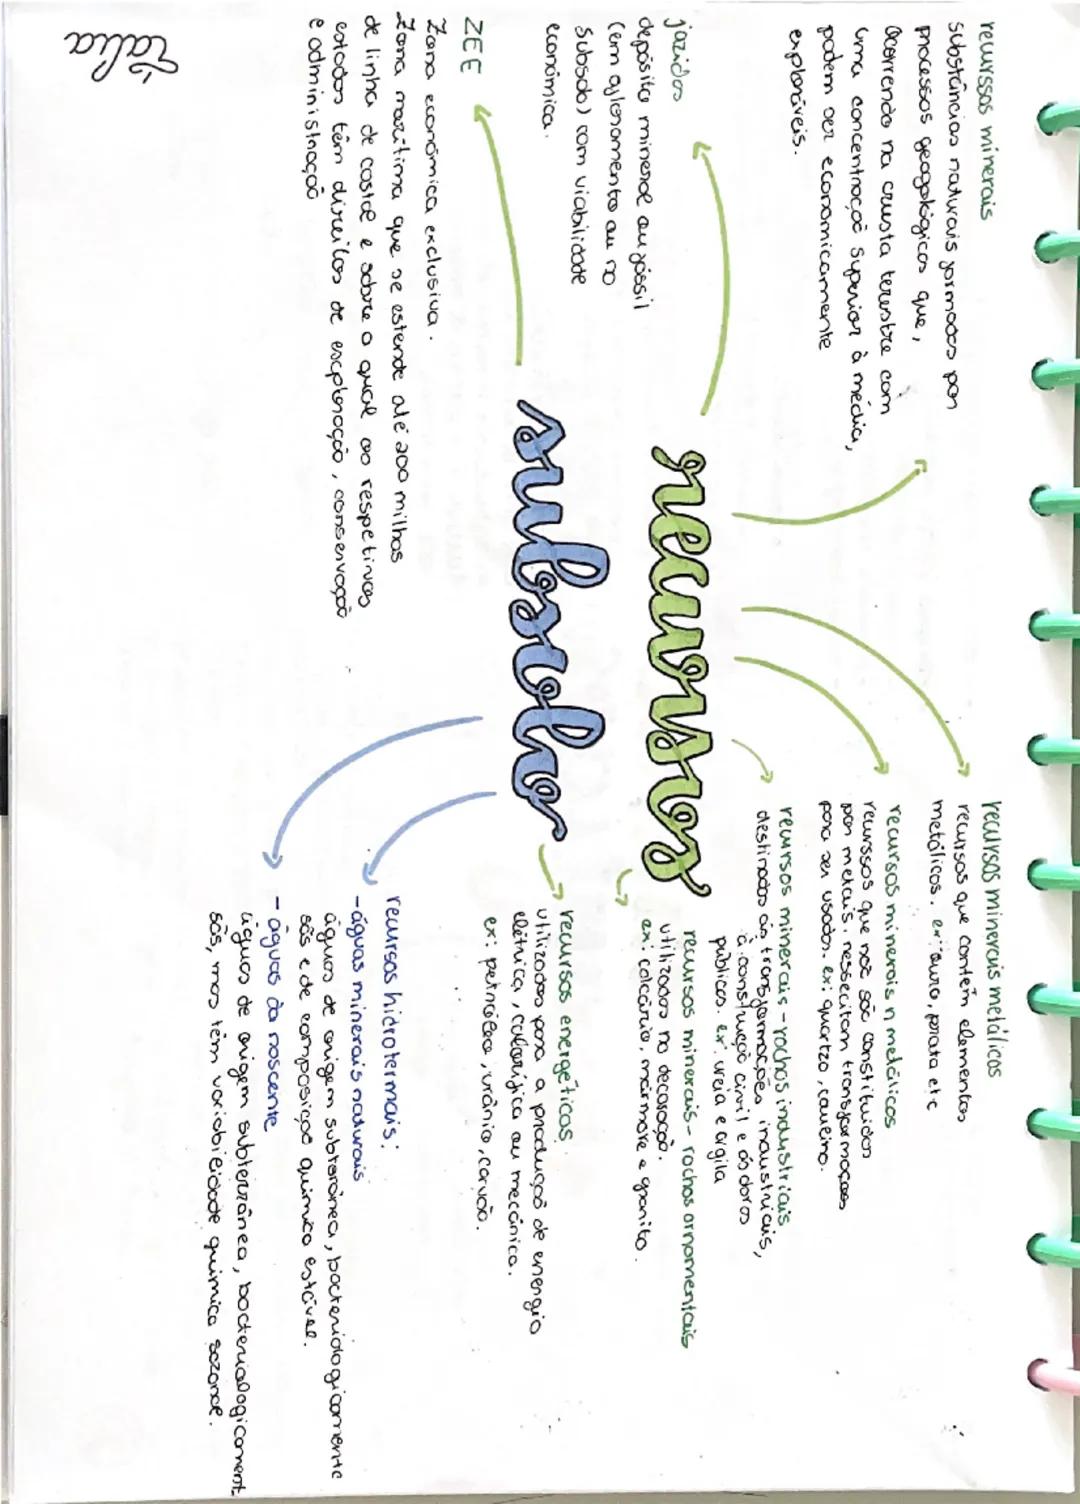 recurssos minerais
substâncias naturais formadas por
processos geogológicos que,
ocorrendo na crusta terrestre com
uma concentração superior à média,
podem ser economicamente
exploráveis.
jazidas
depósito mineral ou fóssil
(em afloramento ou no
subsolo) com viabilidade
económica.
ZEE
Zona económica exclusiva.
Zona marítima que se estende até 200 milhas
de linha de costa e sobre a qual os respetivos
estados têm direitos de exploração, conservação
e administração
recursos
subsolo
recursos minerais metálicos
recursos que contêm elementos
metálicos. ex: ouro, prata etc
recursos minerais n metálicos
recurssos que não são constituidos
por metais. nessecitam transformaçoes
para ser usados. ex: quartzo, caulino.
recursos minerais - rochas industriais
destinados às transformações industriais,
à construção civil e às obras
públicas. ex: areia e argila
recursos minerais - rochas ornamentais
utilizados na decoração.
ex: calcário, mármore e granito.
recursos energéticos
utilizados para a produção de energia
elétrica, calorífica ou mecânica.
ex: petróleo, urânio, carvão.
recursos hidrotermais:
- águas minerais naturais
águas de origem subterrânea, bacteriologicamente
sãs e de composição quimica estável.
- águas da nascente
águas de origem subterrânea, bacterialogicament
sãs, mas têm variabielidade quimica sazonal.
Talia